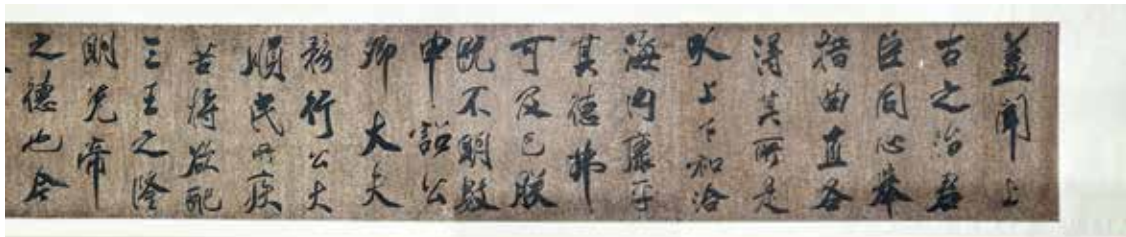 蓋聞上
古之治君
臣同心舉
措曲直各
得其所是
以上下和洽
海內康平
其德弗
可及已朕
既不明數
申詔公
卿大夫
務行公大
順民所疾
苦將欲配
三王之隆
明先帝
之德也今